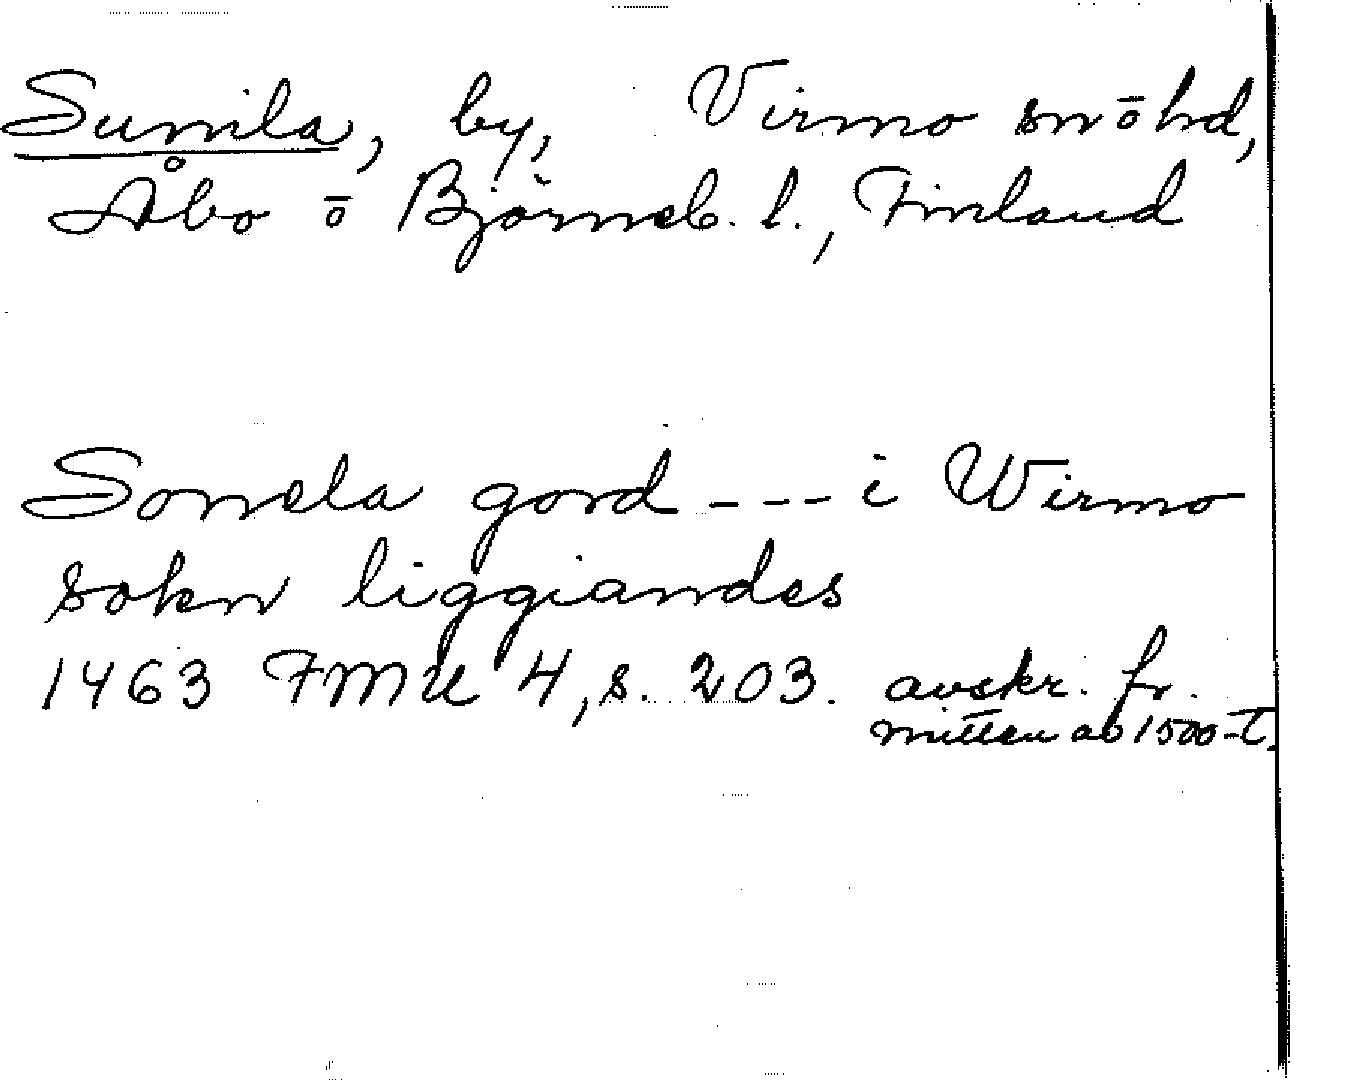 Sunila, by, Virmo sn ō hd,
Åbo ō Björneb. l., Finland
Sonela gord --- i Wirmo
sokn liggiandes
1463 FMU 4, s. 203. avskr. fr.
mitten av 1500-t.